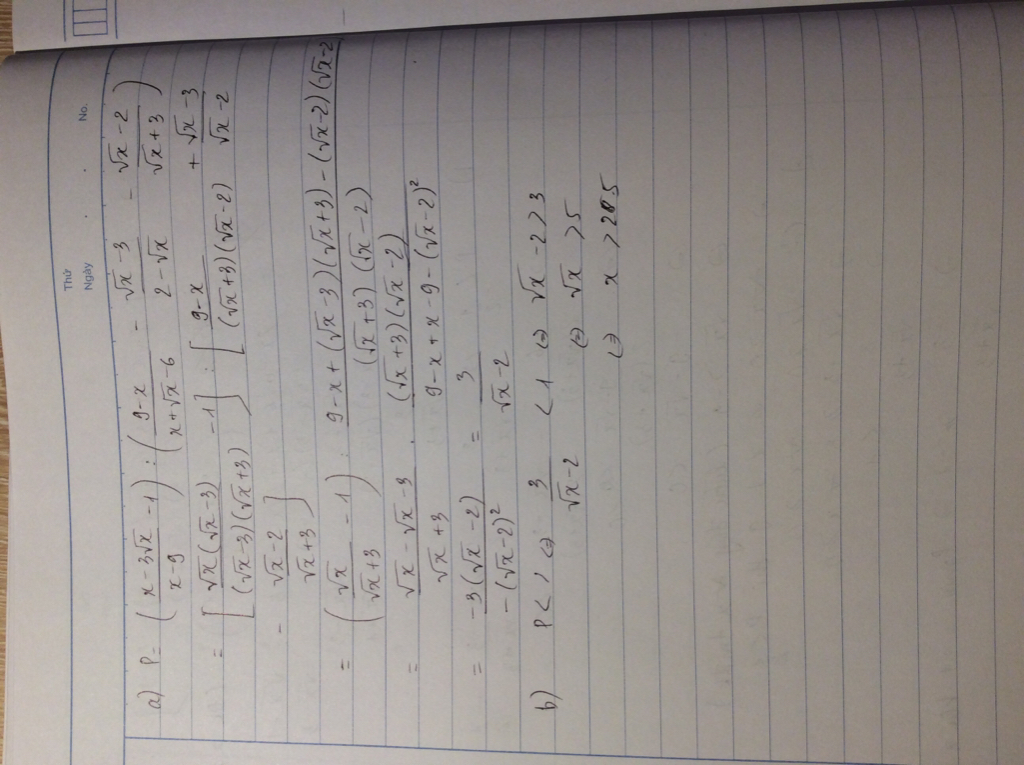 Thứ
Ngày . . No.
a) P = ( (x-3√x)/(x-9) - 1 ) : ( (9-x)/(x+√x-6) - (√x-3)/(2-√x) - (√x-2)/(√x+3) )
= [ √x(√x-3)/((√x-3)(√x+3)) - 1 ] : [ (9-x)/((√x+3)(√x-2)) + (√x-3)/(√x-2)
- (√x-2)/(√x+3) ]
= ( √x/(√x+3) - 1 ) : (9-x+(√x-3)(√x+3)-(√x-2)(√x-2)/((√x+3)(√x-2))
= (√x-√x-3)/(√x+3) . ((√x+3)(√x-2))/(9-x+x-9-(√x-2)²)
= -3(√x-2)/(-(√x-2)²) = 3/(√x-2)
b) P < 1 ⇔ 3/(√x-2) < 1 ⇔ √x-2 > 3
⇔ √x > 5
⇔ x > 25